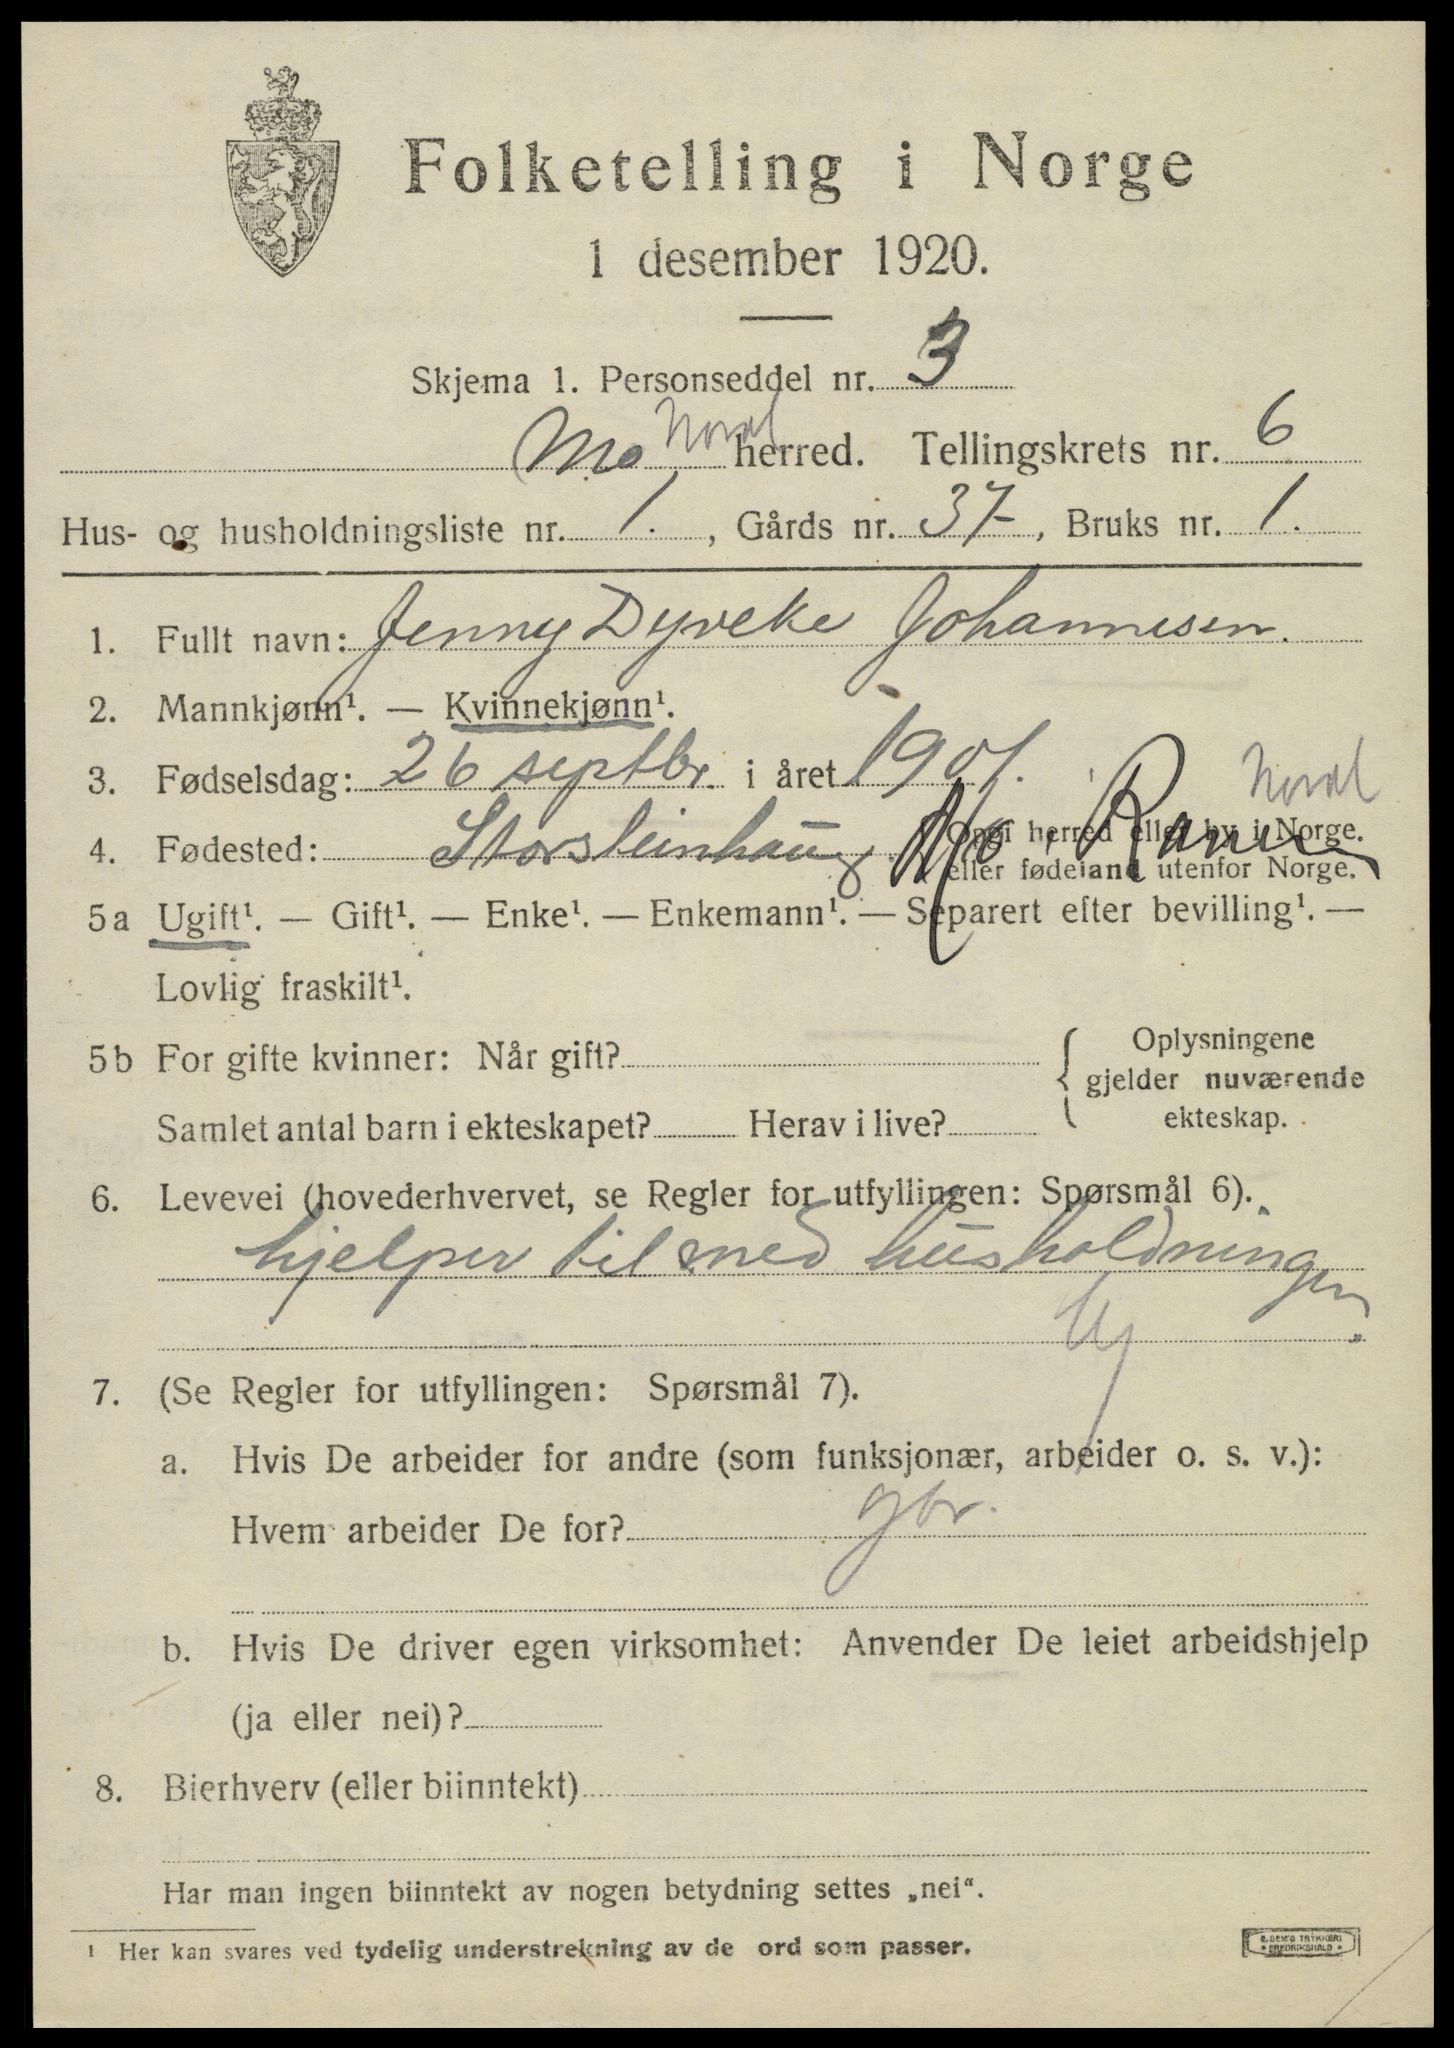 Folketelling i Norge
1 desember 1920.
Skjema 1. Personseddel nr. 3
Mo Nordl herred. Tellingskrets nr. 6
Hus- og husholdningsliste nr. 1. , Gårds nr. 37 , Bruks nr. 1.
1. Fullt navn: Jenny Dyveke Johannesen.
2. Mannkjønn¹. — Kvinnekjønn¹.
3. Fødselsdag: 26 septbr. i året 1901.
Nordl
4. Fødested: Storsteinhaug Mo, Ranen
Opgi herred eller by i Norge.
eller fødeland utenfor Norge.
5a Ugift¹. — Gift¹. — Enke¹. — Enkemann¹. — Separert efter bevilling¹. —
Lovlig fraskilt¹.
5b For gifte kvinner: Når gift?
Samlet antal barn i ekteskapet? Herav i live?
Oplysningene
gjelder nuværende
ekteskap.
6. Levevei (hovederhvervet, se Regler for utfyllingen: Spørsmål 6).
hjelper til med husholdningen.
7. (Se Regler for utfyllingen: Spørsmål 7).
a. Hvis De arbeider for andre (som funksjonær, arbeider o. s. v.):
Hvem arbeider De for? gbr.
b. Hvis De driver egen virksomhet: Anvender De leiet arbeidshjelp
(ja eller nei)?
8. Bierhverv (eller biinntekt)
Har man ingen biinntekt av nogen betydning settes „nei“.
¹ Her kan svares ved tydelig understrekning av de ord som passer.
E. SEM'S TRYKKERI
* FREDRIKSHALD *